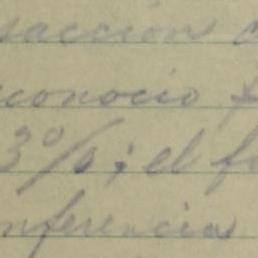 sacción
conoció
3%; el
nferencia